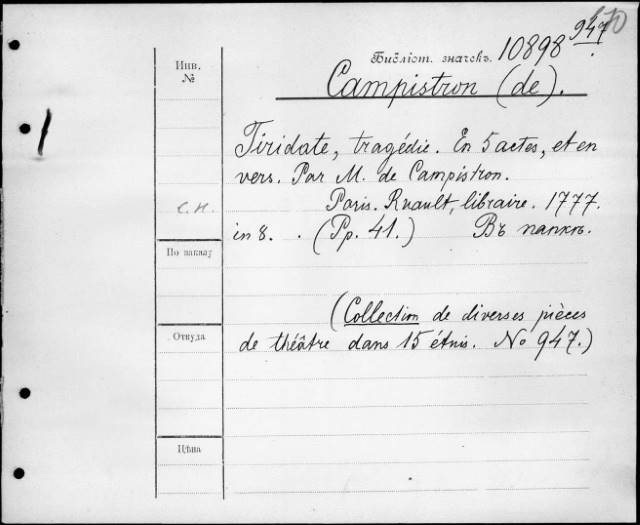 947
Инв.
№
Библіот. значекъ. 10898
Campistron (de).
Tiridate, tragédie. En 5 actes, et en
vers. Par M. de Campistron.
Paris. Ruault, libraire. 1777.
С.И.
in 8. . (Pp. 41.) Въ папкѣ.
По заказу
(Collection de diverses pièces
Откуда
de théâtre dans 15 étuis. No 947.)
Цѣна